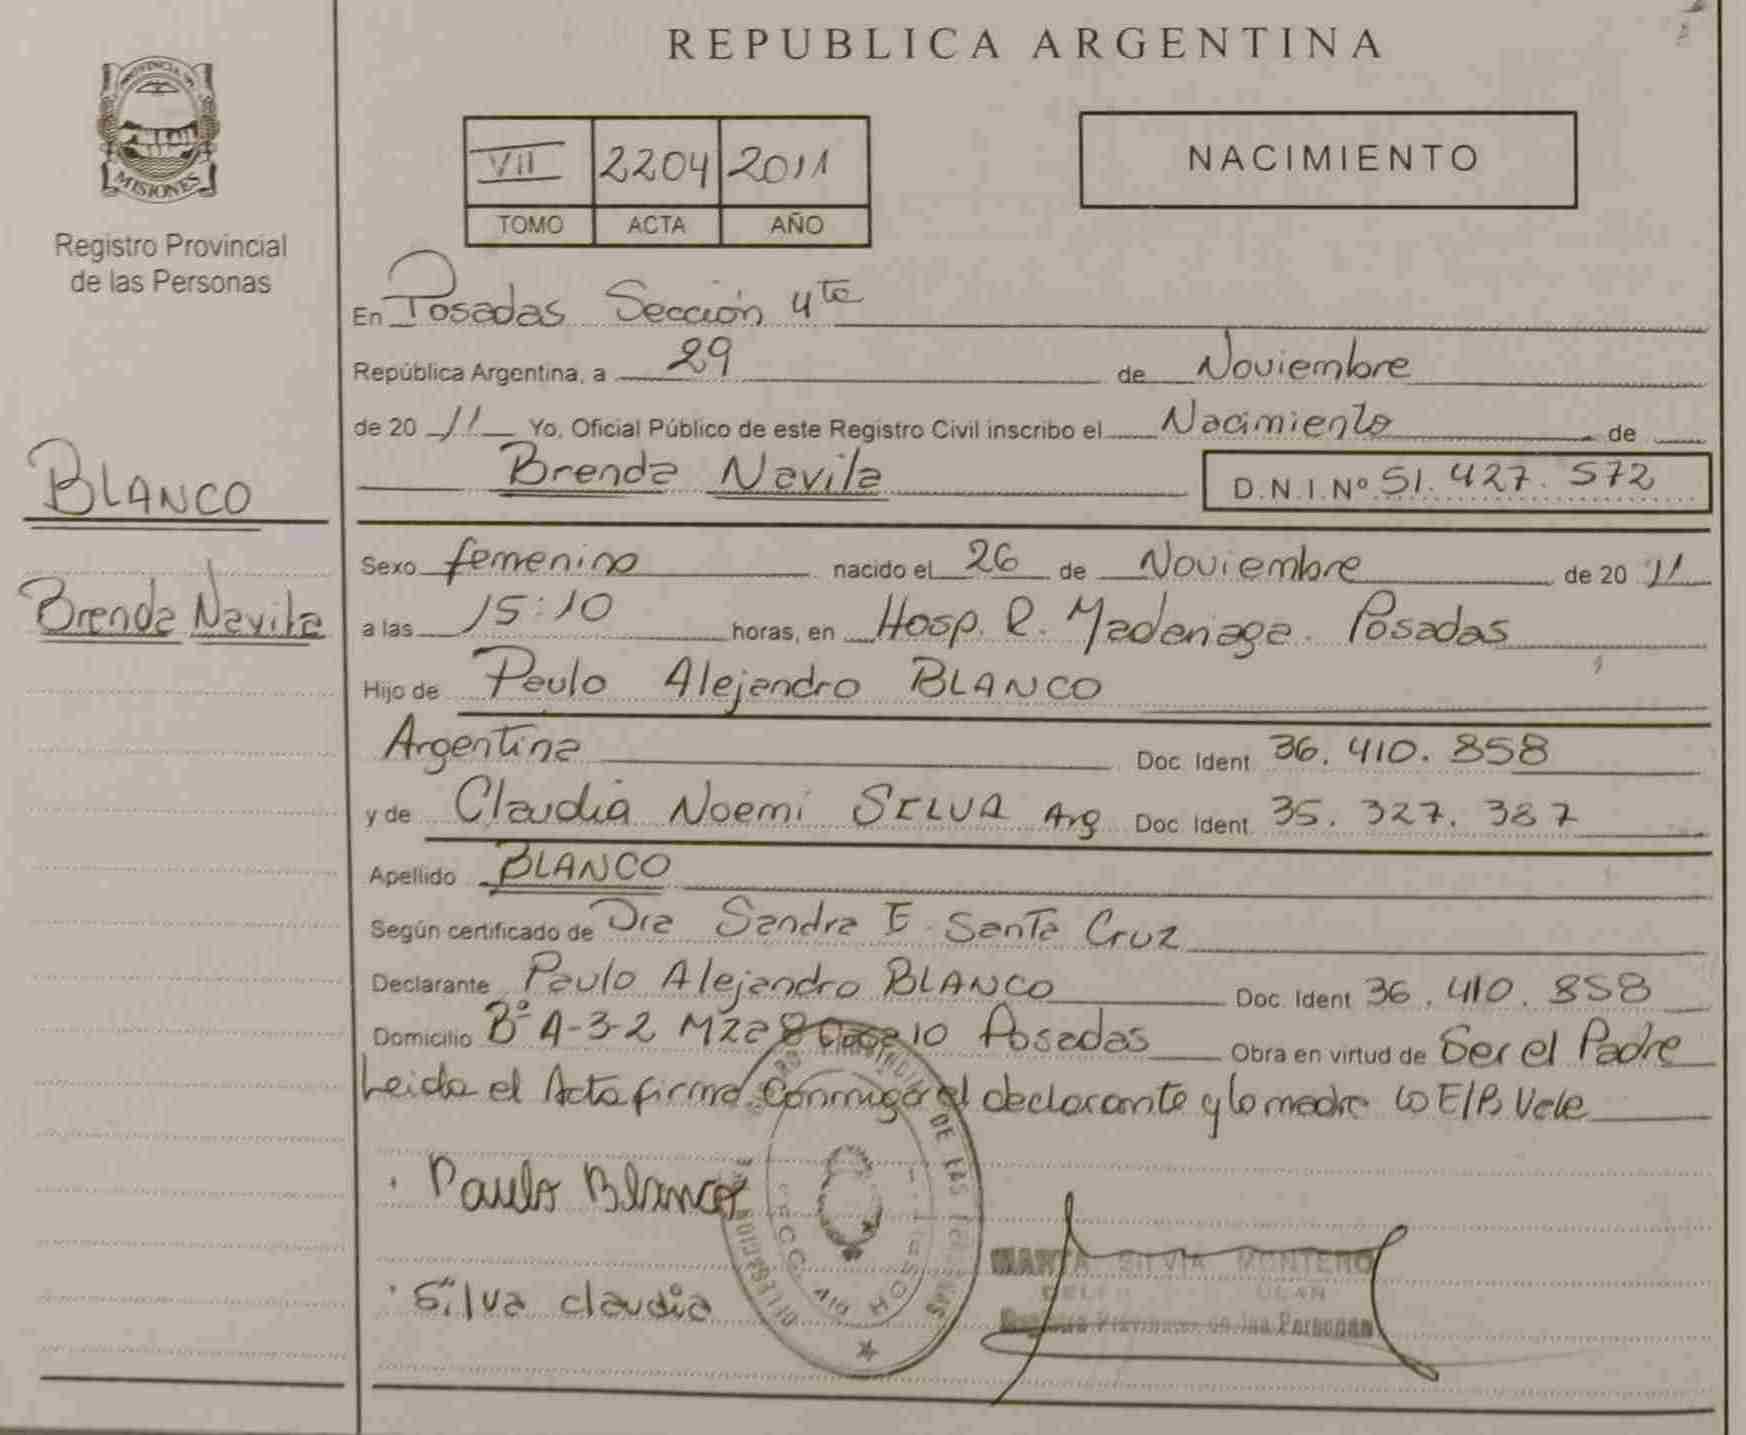 REPUBLICA ARGENTINA
PROVINCIA DE
MISIONES
Registro Provincial
de las Personas
VII 2204 2011
TOMO ACTA AÑO
NACIMIENTO
En Posadas Sección 4ta
República Argentina, a 29 de Noviembre
de 2011 Yo, Oficial Público de este Registro Civil inscribo el Nacimiento de
Brenda Navila D.N.I. Nº 51.427.572
BLANCO
Brenda Navila
Sexo femenino nacido el 26 de Noviembre de 2011
a las 15:10 horas, en Hosp. R. Madariaga. Posadas
Hijo de Paulo Alejandro BLANCO
Argentina Doc. Ident 36.410.858
y de Claudia Noemi SILVA Arg Doc. Ident 35.327.387
Apellido BLANCO
Según certificado de Dra Sandra E. Santa Cruz
Declarante Paulo Alejandro BLANCO Doc. Ident 36.410.858
Domicilio Bº A-3-2 Mza 8 Casa 10 Posadas Obra en virtud de Ser el Padre
Leida el Acta firma conmigo el declarante y la madre lo E/B Vale
Paulo Blanco
Silva claudia
MARTA SILVIA MONTERO
Registro Provincial de las Personas